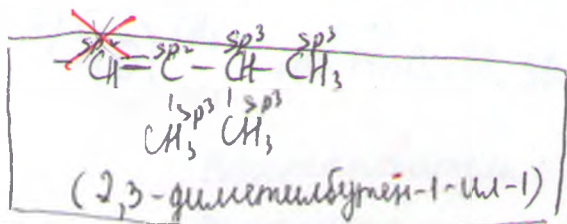 sp² sp² sp³ sp³
– CH = C – CH – CH₃
sp³ sp³
CH₃ CH₃
(2,3-диметилбутен-1-ил-1)